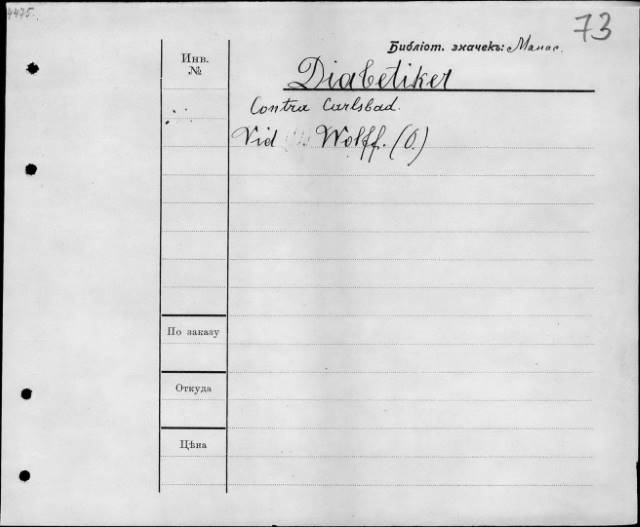 4475.
73
Библіот. значекъ:
Инв.
№
Diabetiker
Contra Carlsbad.
Vid Wolff. (O.)
По заказу
Откуда
Цѣна